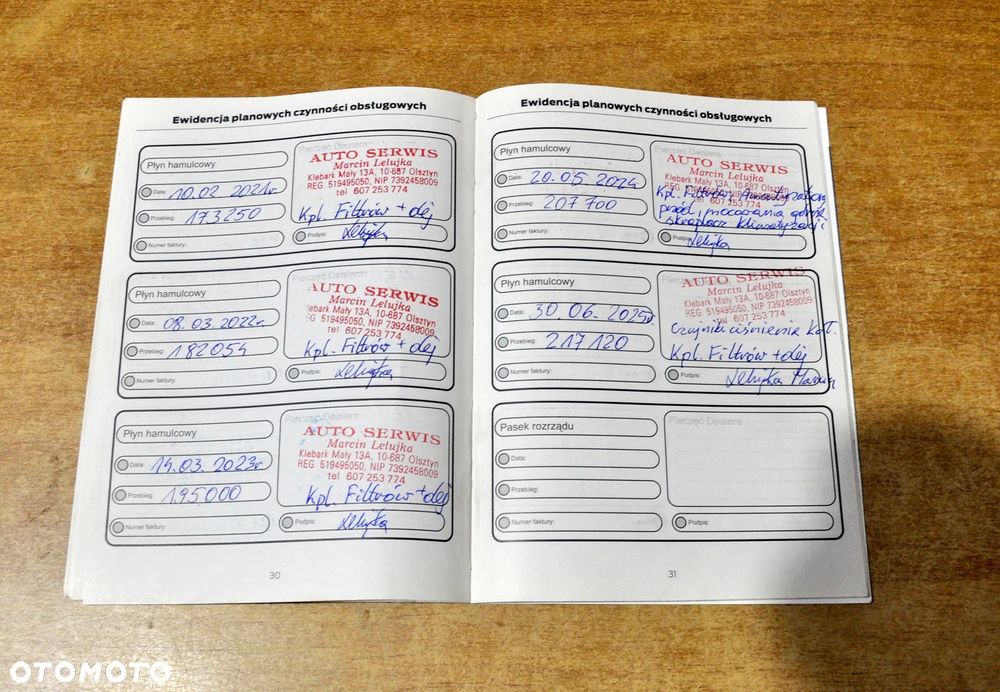 Ewidencja planowych czynności obsługowych
Płyn hamulcowy
Data: 10.02 2021r
Przebieg: 173250
Numer faktury:
Pieczęć Dealera
AUTO SERWIS
Marcin Lelujka
Klebark Mały 13A, 10-687 Olsztyn
REG 519495050, NIP 7392458009
tel 607 253 774
Kpl. Filtrów + olej
Podpis: Lelujka
Płyn hamulcowy
Data: 08.03.2022r.
Przebieg: 182054
Numer faktury:
Pieczęć Dealera
AUTO SERWIS
Marcin Lelujka
Klebark Mały 13A, 10-687 Olsztyn
REG 519495050, NIP 7392458009
tel 607 253 774
Kpl. Filtrów + olej
Podpis: Lelujka
Płyn hamulcowy
Data: 14.03.2023r
Przebieg: 195000
Numer faktury:
Pieczęć Dealera
AUTO SERWIS
Marcin Lelujka
Klebark Mały 13A, 10-687 Olsztyn
REG 519495050, NIP 7392458009
tel 607 253 774
Kpl. Filtrów + olej
Podpis: Lelujka
30
Ewidencja planowych czynności obsługowych
Płyn hamulcowy
Data: 20.05.2024
Przebieg: 207 700
Numer faktury:
Pieczęć Dealera
AUTO SERWIS
Marcin Lelujka
Klebark Mały 13A, 10-687 Olsztyn
REG 519495050, NIP 7392458009
tel 607 253 774
Kpl. Filtrów, Amortyzatory
przód, mocowania górne
skraplacz klimatyzacji
Podpis: Lelujka
Płyn hamulcowy
Data: 30.06.2025r
Przebieg: 217 120
Numer faktury:
Pieczęć Dealera
AUTO SERWIS
Marcin Lelujka
Klebark Mały 13A, 10-687 Olsztyn
REG 519495050, NIP 7392458009
tel 607 253 774
Czujniki ciśnienia kół.
Kpl. Filtrów + olej
Podpis: Lelujka Marcin
Pasek rozrządu
Data:
Przebieg:
Numer faktury:
Pieczęć Dealera
Podpis:
31
OTOMOTO